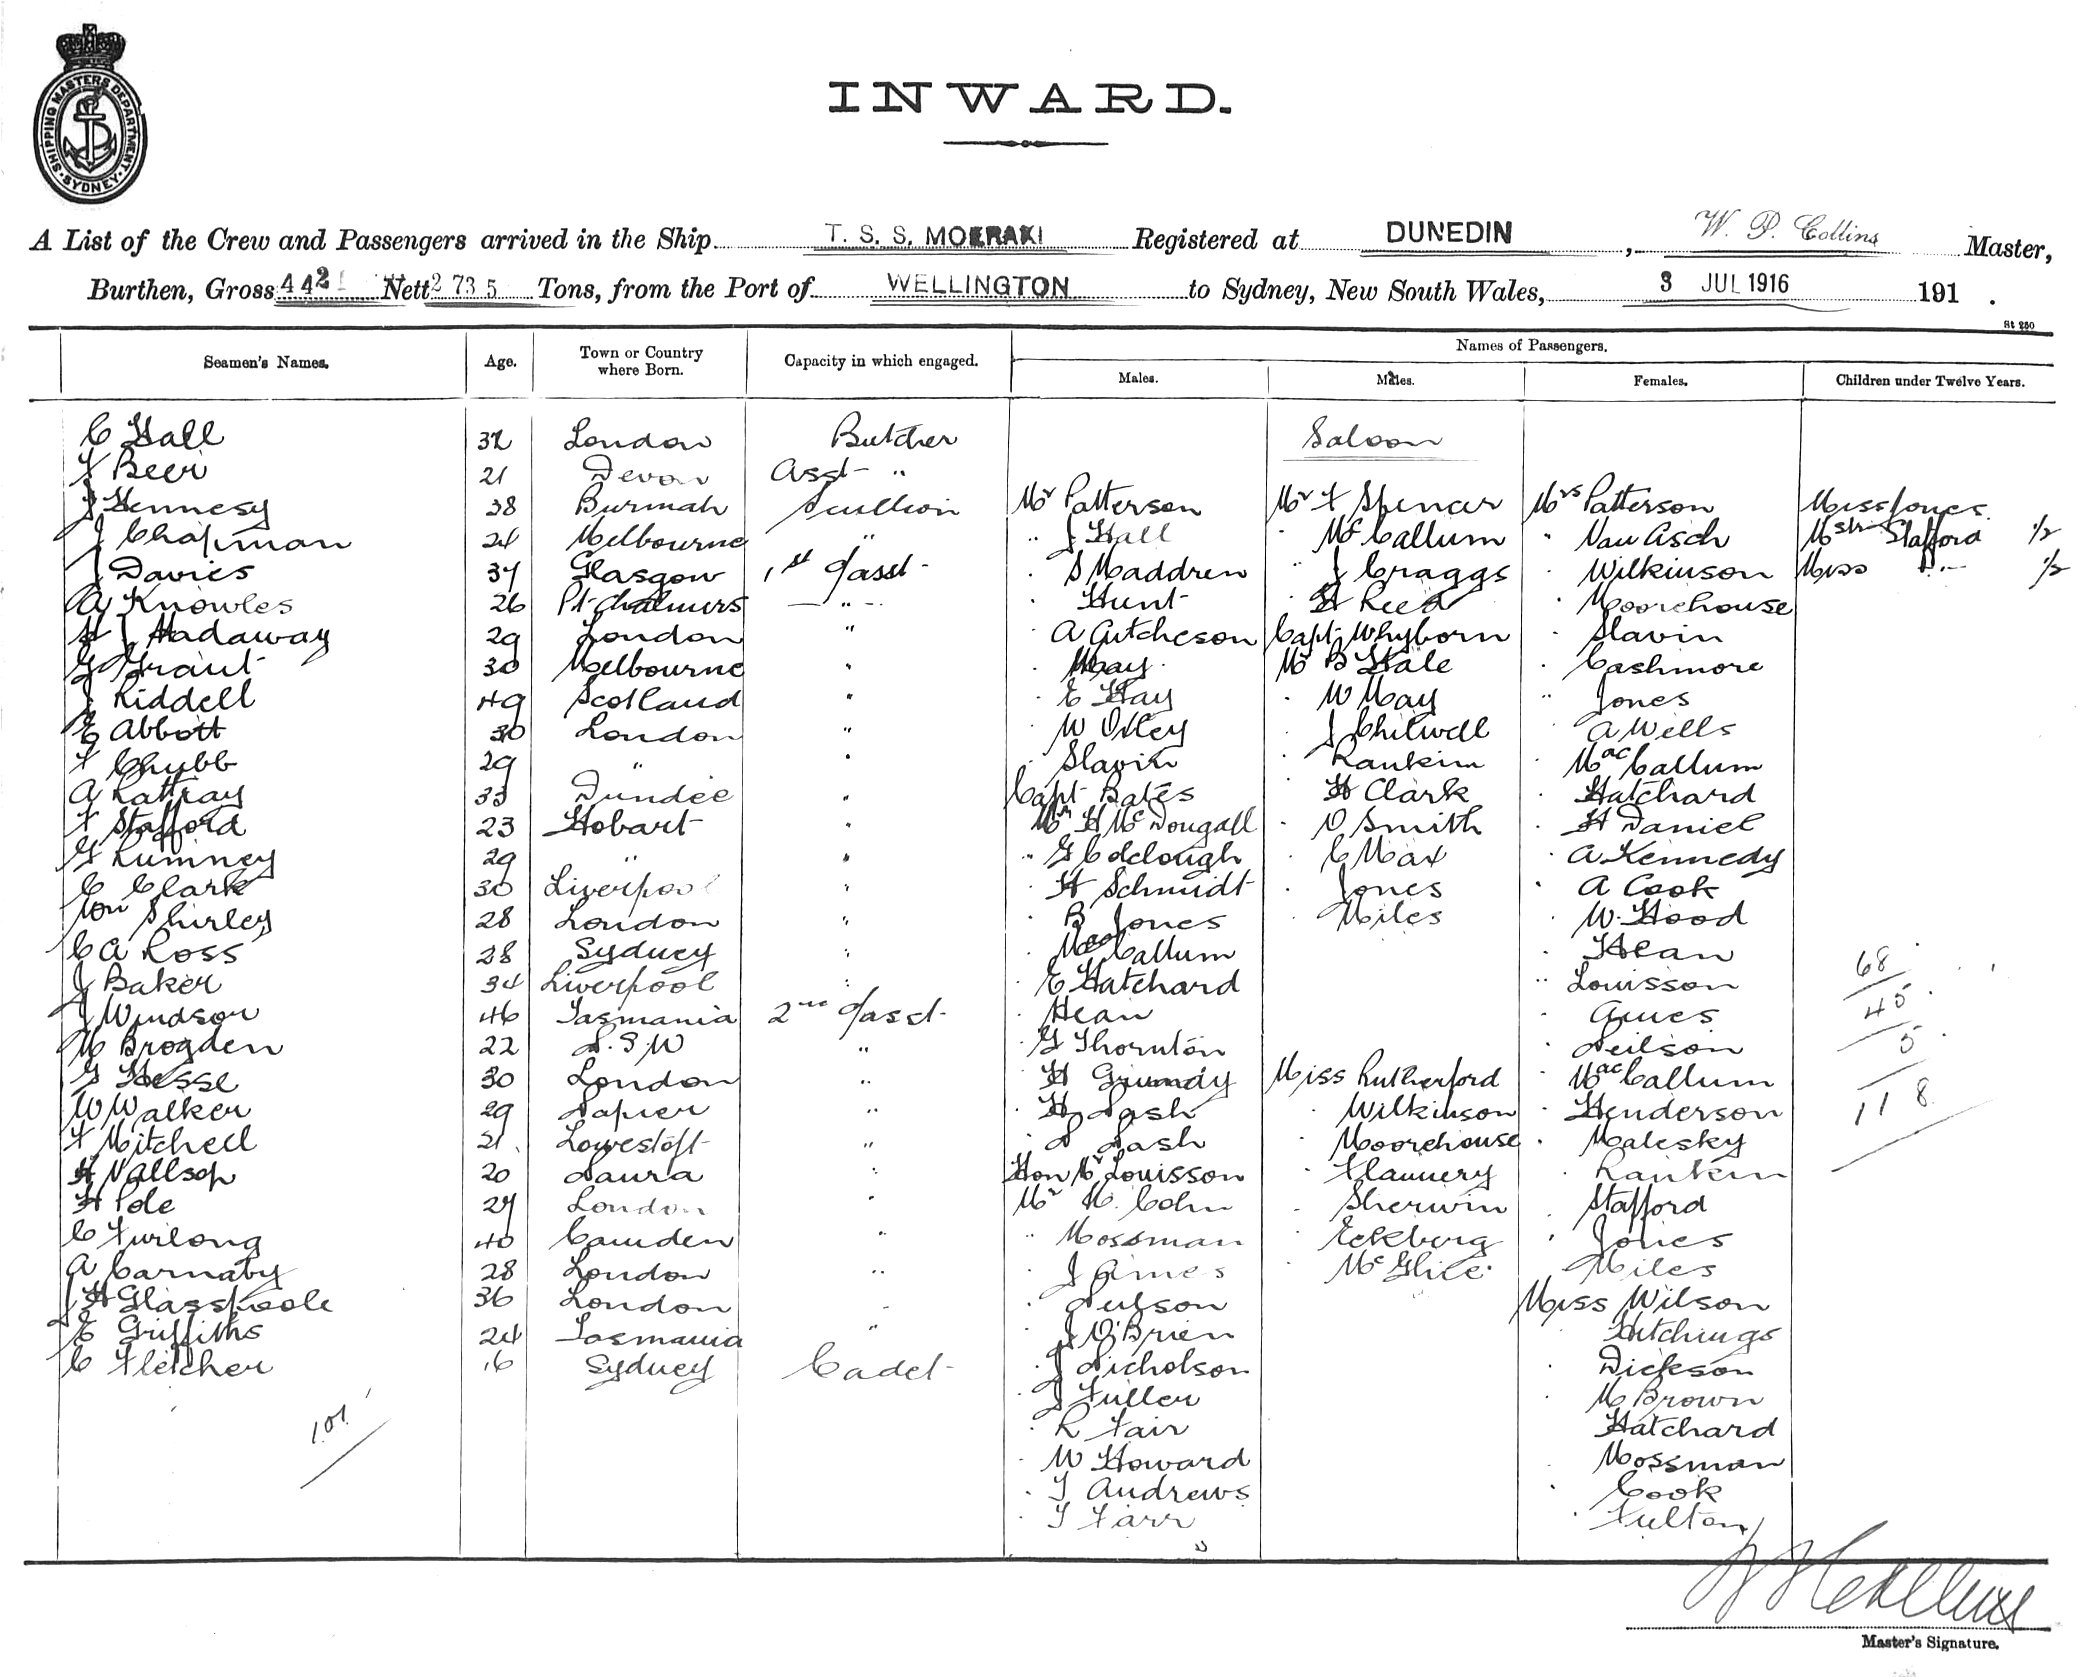 SHIPPING MASTERS DEPARTMENT. SYDNEY.
INWARD.
A List of the Crew and Passengers arrived in the Ship T. S. S. MOERAKI Registered at DUNEDIN, W. P. Collins Master,
Burthen, Gross 442 Nett 2735 Tons, from the Port of WELLINGTON to Sydney, New South Wales, 3 JUL 1916 191 .
St 250
Seamen's Names. Age. Town or Country where Born. Capacity in which engaged. Names of Passengers.
Males. Males. Females. Children under Twelve Years.
C Hall 32 London Butcher Saloon
F Beer 21 Devon Asst "
J Hennesy 38 Burmah Scullion Mr Patterson Mr F Spencer Mrs Patterson Miss Jones
J Chapman 24 Melbourne " " J Hall " McCallum " Van Asch Mstr Stafford 1/2
J Davies 37 Glasgow 1st Passt " S Maddren " J Craggs " Wilkinson Miss Do 1/2
A Knowles 26 Pt Chalmers " " Hunt " H Reed " Moorehouse
H J Hadaway 29 London " " A Gutcheson Capt Whyborn " Slavin
G Grant 30 Melbourne " " May Mr B Hale " Cashmore
J Riddell 49 Scotland " " E Hay " W May " Jones
E Abbott 30 London " " W Otley " J Chilwell " A Wells
F Chubb 29 " " " Slavin " Rankin " MacCallum
A Rattray 33 Dundee " Capt Bates " H Clark " Hatchard
F Stafford 23 Hobart " Mr H McDougall " O Smith " H Daniel
G Rumney 29 " " " G Colclough " C Max " A Kennedy
C Clark 30 Liverpool " " H Schmidt " Jones " A Cook
Wm Shirley 28 London " " B Jones " Miles " W. Hood
C A Ross 28 Sydney " " MacCallum " Hean
J Baker 34 Liverpool " " E Hatchard " Louisson 68
J Windsor 46 Tasmania 2nd Passt " Hean " Ames 45
M Brogden 22 N.S.W " " G Thornton " Neilson 5
G Hesse 30 London " " H Grundy Miss Rutherford " MacCallum
W Walker 29 Napier " " H Nash " Wilkinson " Henderson 118
F Mitchell 21 Lowestoft " " N Nash " Moorehouse " Malesky
H Vallsop 20 Naura " Hon Mr Louisson " Flannery " Rankin
H Pole 27 London " Mr M. Cohn " Sherwin " Stafford
C Furlong 40 Camden " " Mossman " Eckberg " Jones
A Carnaby 28 London " " J Ames " McGhie " Miles
J H Glasspoole 36 London " " Neilson Miss Wilson
E Griffiths 24 Tasmania " " J O'Brien " Hitchings
C Fletcher 16 Sydney Cadet " J Nicholson " Dickson
" J Fuller " M Brown
101 " R Fair " Hatchard
" W Howard " Mossman
" T Andrews " Cook
" T Farr " Fulton
W P Collins
Master's Signature.